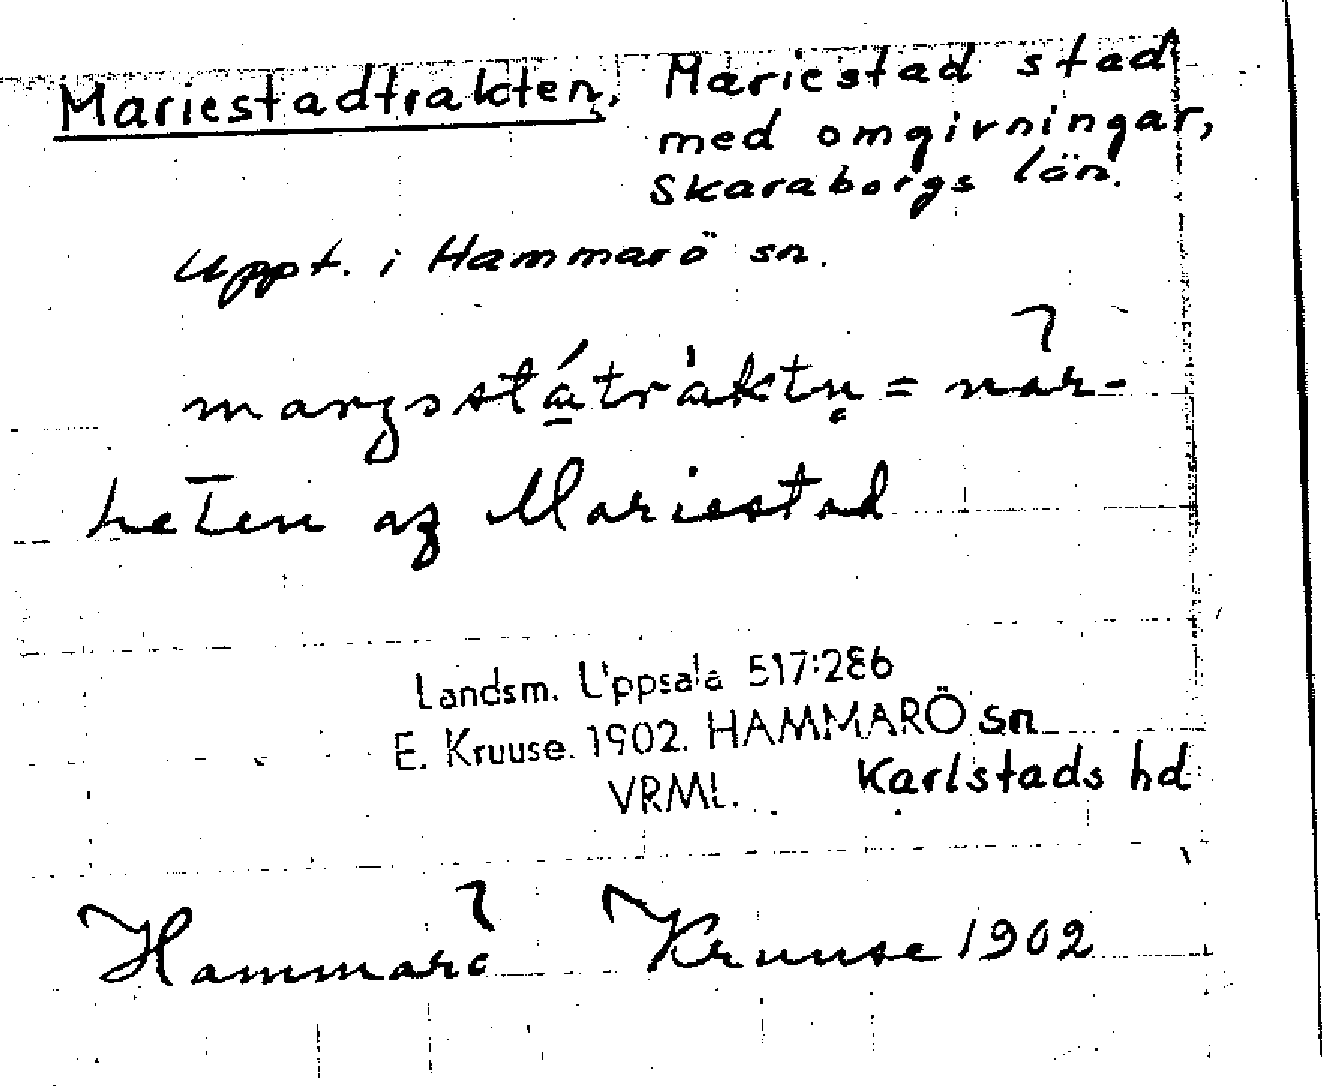 Mariestadtrakten, Mariestad stad
med omgivningar,
Skaraborgs län.
Uppt. i Hammarö sn.
= när-
heten af Mariestad
Landsm. Uppsala 517:286
E. Kruuse. 1902. HAMMARÖ sn
VRML. Karlstads hd
Hammarö Kruuse 1902